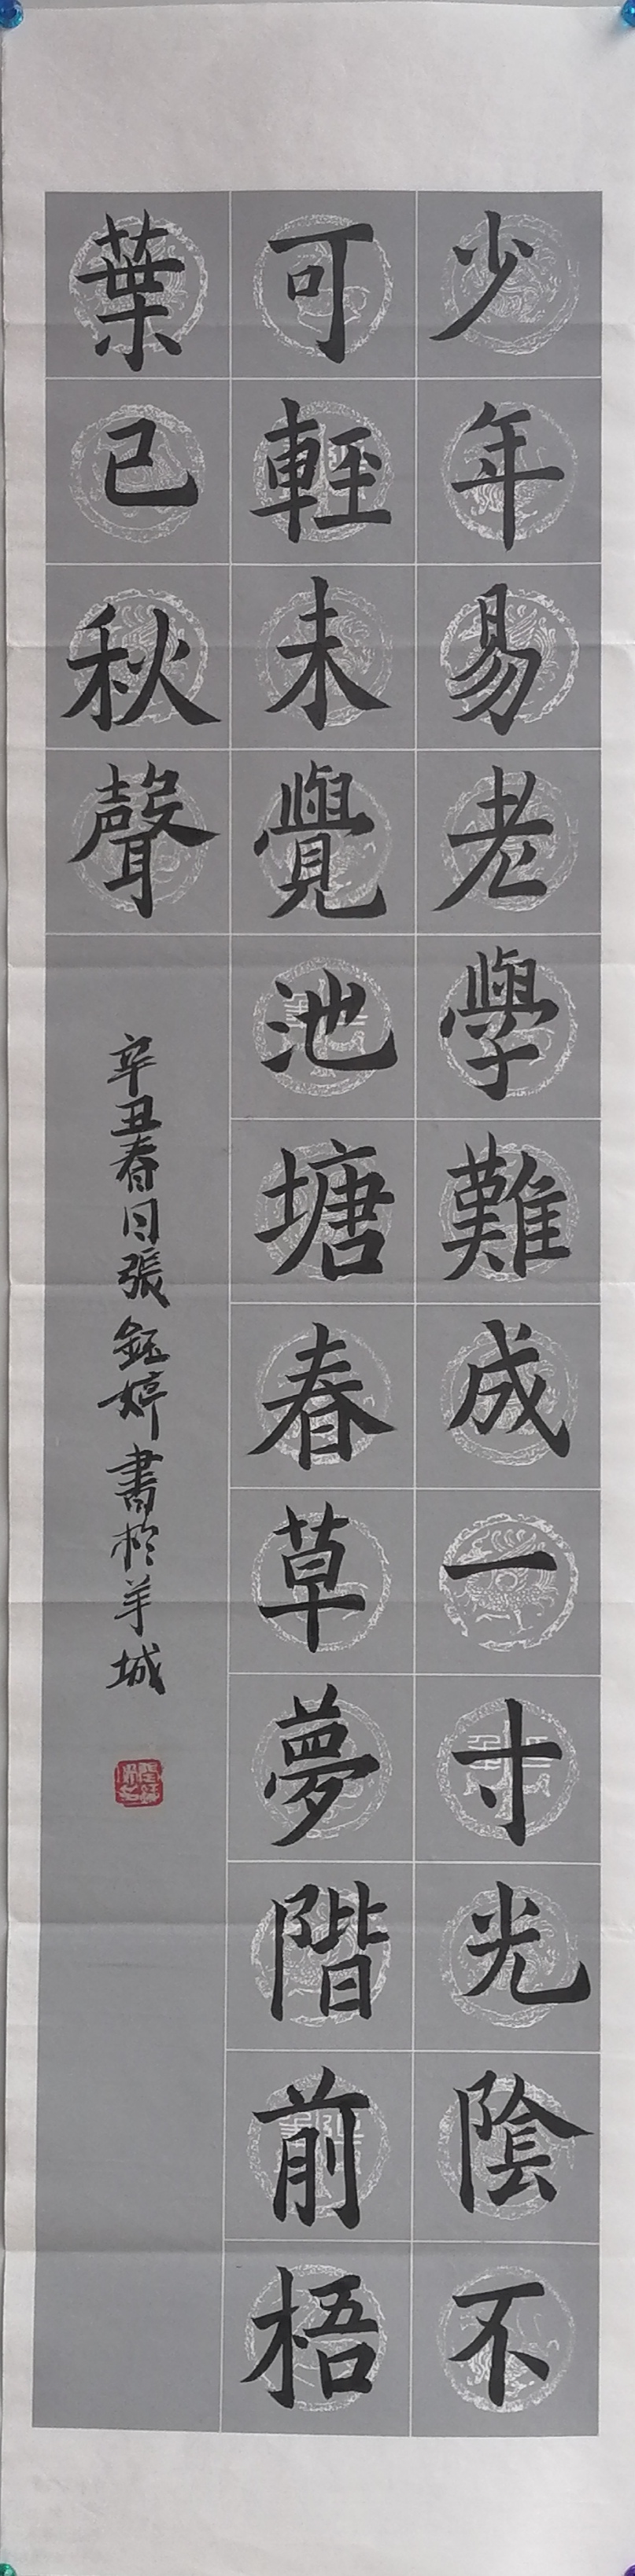 少年易老學難成一寸光陰不
可輕未覺池塘春草夢階前梧
葉已秋聲
辛丑春日張鈺婷書於羊城